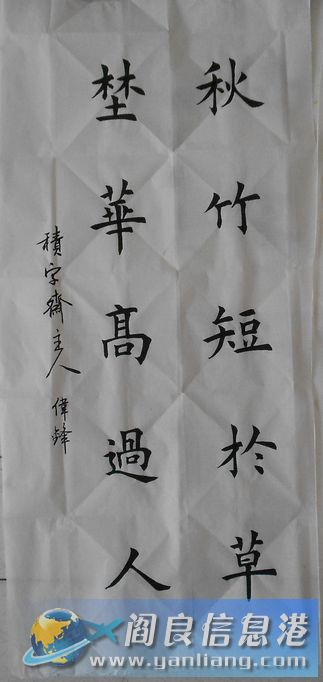 秋竹短於草
埜華髙過人
積字齋主人 偉鋒
阎良信息港
www.yanliang.com